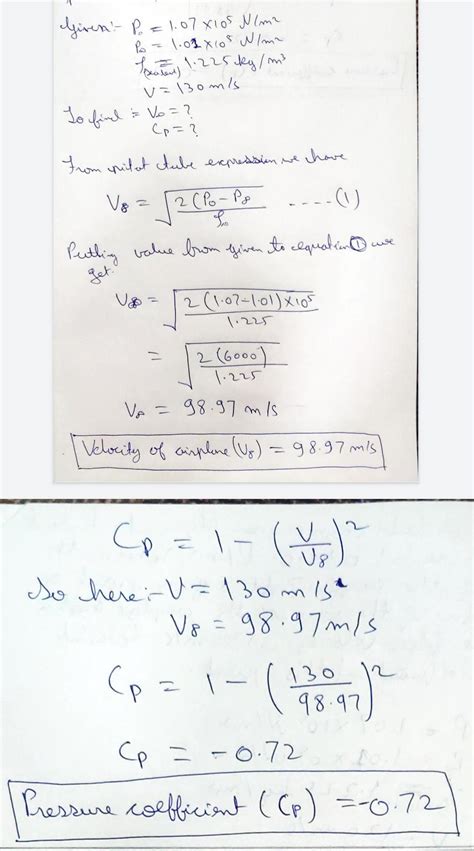 Given:- P₀ = 1.07 ×10⁵ N/m²
P∞ = 1.01 ×10⁵ N/m²
ρ(sealevel) = 1.225 kg/m³
V = 130 m/s
To find :- V∞ = ?
Cp = ?
From pitot tube expression we have
V∞ = √(2(P₀ - P∞)/ρ∞) ----(1)
Putting value from given to equation ① we
get.
V∞ = √(2(1.07-1.01)×10⁵/1.225)
= √(2(6000)/1.225)
V∞ = 98.97 m/s
Velocity of airplane (V∞) = 98.97 m/s
Cp = 1 - (V/V∞)²
So here:- V = 130 m/s
V∞ = 98.97 m/s
Cp = 1 - (130/98.97)²
Cp = -0.72
Pressure coefficient (Cp) = -0.72